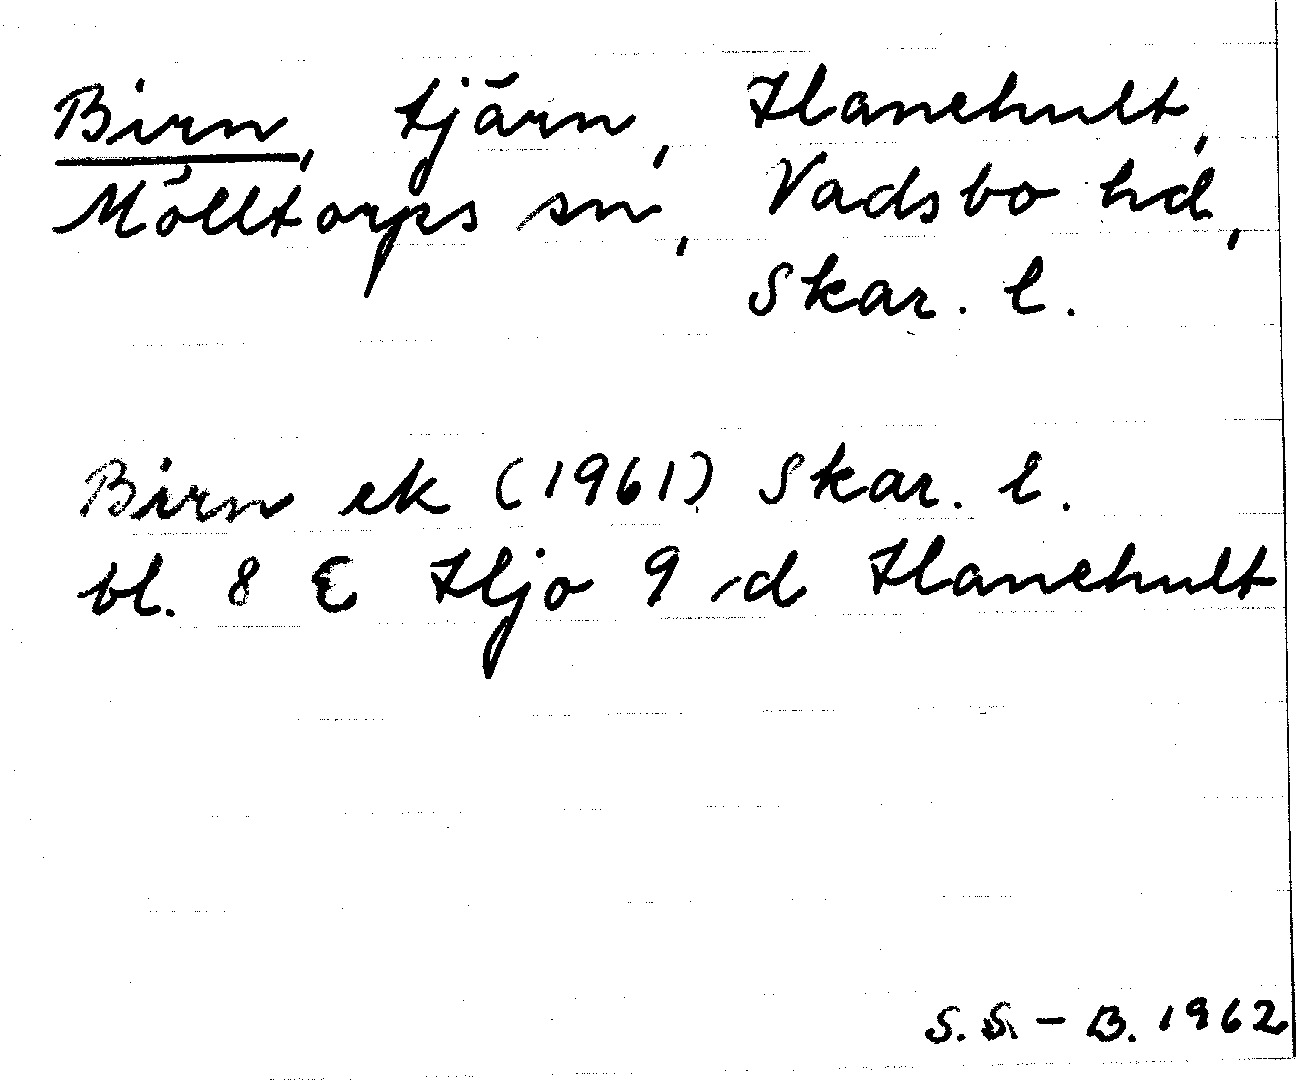 Birn, tjärn, Hanehult,
Mölltorps sn, Vadsbo hd,
Skar. l.
Birn ek (1961) Skar. l.
bl. 8 E Hjo 9 d Hanehult
S. S. - B. 1962